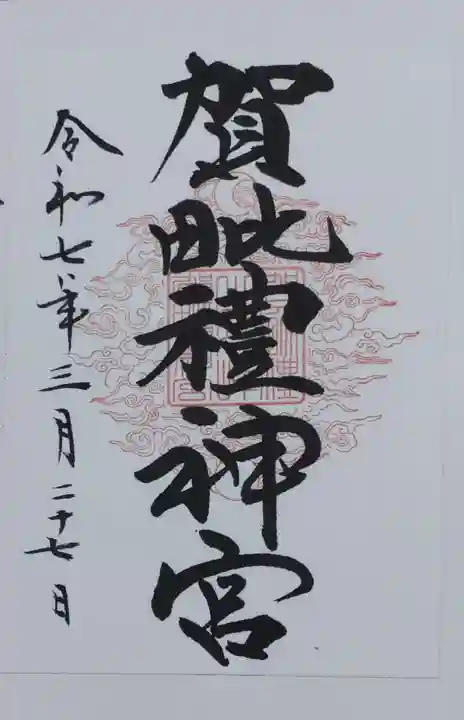 賀毗禮神宮
令和七年三月二十七日